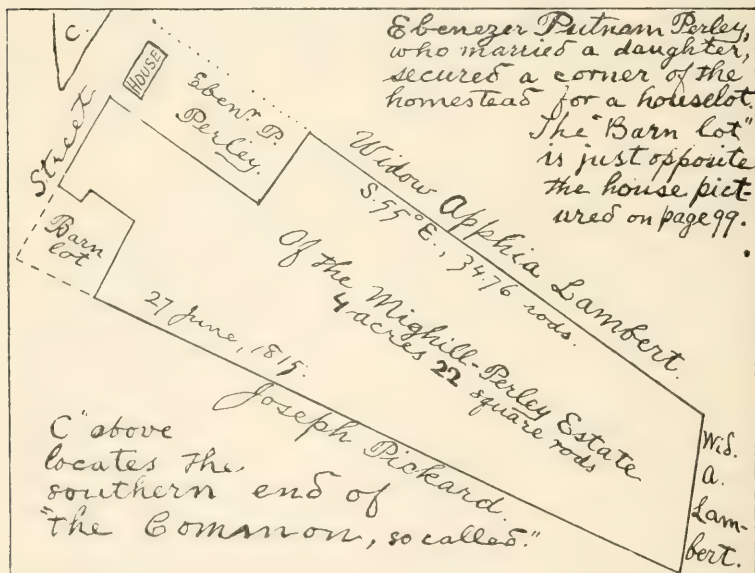 C.
HOUSE
Street
Eben.r P.
Perley.
Ebenezer Putnam Perley,
who married a daughter,
secured a corner of the
homestead for a houselot.
The "Barn lot"
is just opposite
the house pict-
ured on page 99.
Widow Apphia Lambert.
S. 55° E., 34.76 rods.
Barn
lot
Of the Mighill-Perley Estate
4 acres 22 square rods
27 June, 1815.
Joseph Pickard.
Wid.
A.
Lam-
bert.
C" above
locates the
southern end of
"the Common, so called."